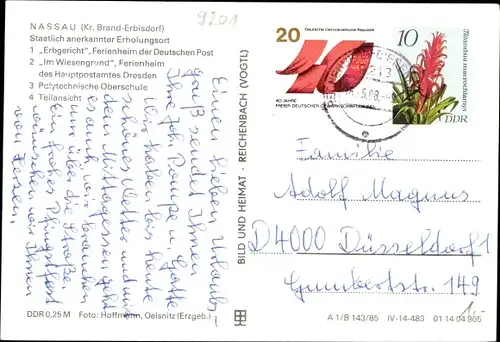 9201
NASSAU (Kr. Brand-Erbisdorf)
Staatlich anerkannter Erholungsort
1 „Erbgericht", Ferienheim der Deutschen Post
2 „Im Wiesengrund", Ferienheim
des Hauptpostamtes Dresden
3 Polytechnische Oberschule
4 Teilansicht
Einen lieben Urlaubs-
gruß sendet Ihnen
Ihre Joh. Pampe u. Gatte
Wir haben bis heute
schönes Wetter und mit
dem Mittagessen geht
es auch, wir brauchen
nur über die Straße.
Ein frohes Pfingstfest
wünschen wir Ihnen
von Herzen.
DDR 0,25 M Foto: Hoffmann, Oelsnitz (Erzgeb.)
BILD UND HEIMAT · REICHENBACH (VOGTL)
20
Deutsche Demokratische Republik
40
40 JAHRE
FREIER DEUTSCHER GEWERKSCHAFTSBUND
10
DDR
Familie
Adolf Magnus
D4000 Düsseldorf 1
Gumbertstr. 149
1.-
A 1/B 143/85 IV-14-483 01 14 04 905